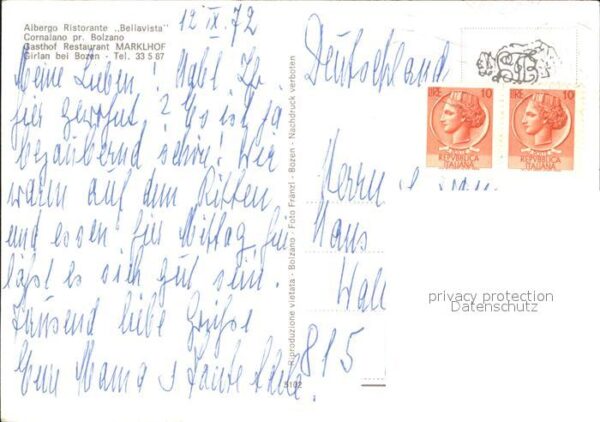 Albergo Ristorante „Bellavista"
Cornaiano pr. Bolzano
Gasthof Restaurant MARKLHOF
Girlan bei Bozen - Tel. 33 5 87
12 IX. 72
Meine Lieben! Habt Ihr
hier gewohnt? Es ist ja
bezaubernd schön! Wir
waren auf dem Ritten
und essen hier Mittag, hier
läßt es sich gut sein.
Tausend liebe Grüße
Eure Mama u Tante Adele
Riproduzione vietata - Bolzano - Foto Franzl - Bozen - Nachdruck verboten
5102
Deutschland
LIRE 10
REPVBBLICA
ITALIANA
LIRE 10
REPVBBLICA
ITALIANA
Herrn u Frau
Hans
815
privacy protection
Datenschutz